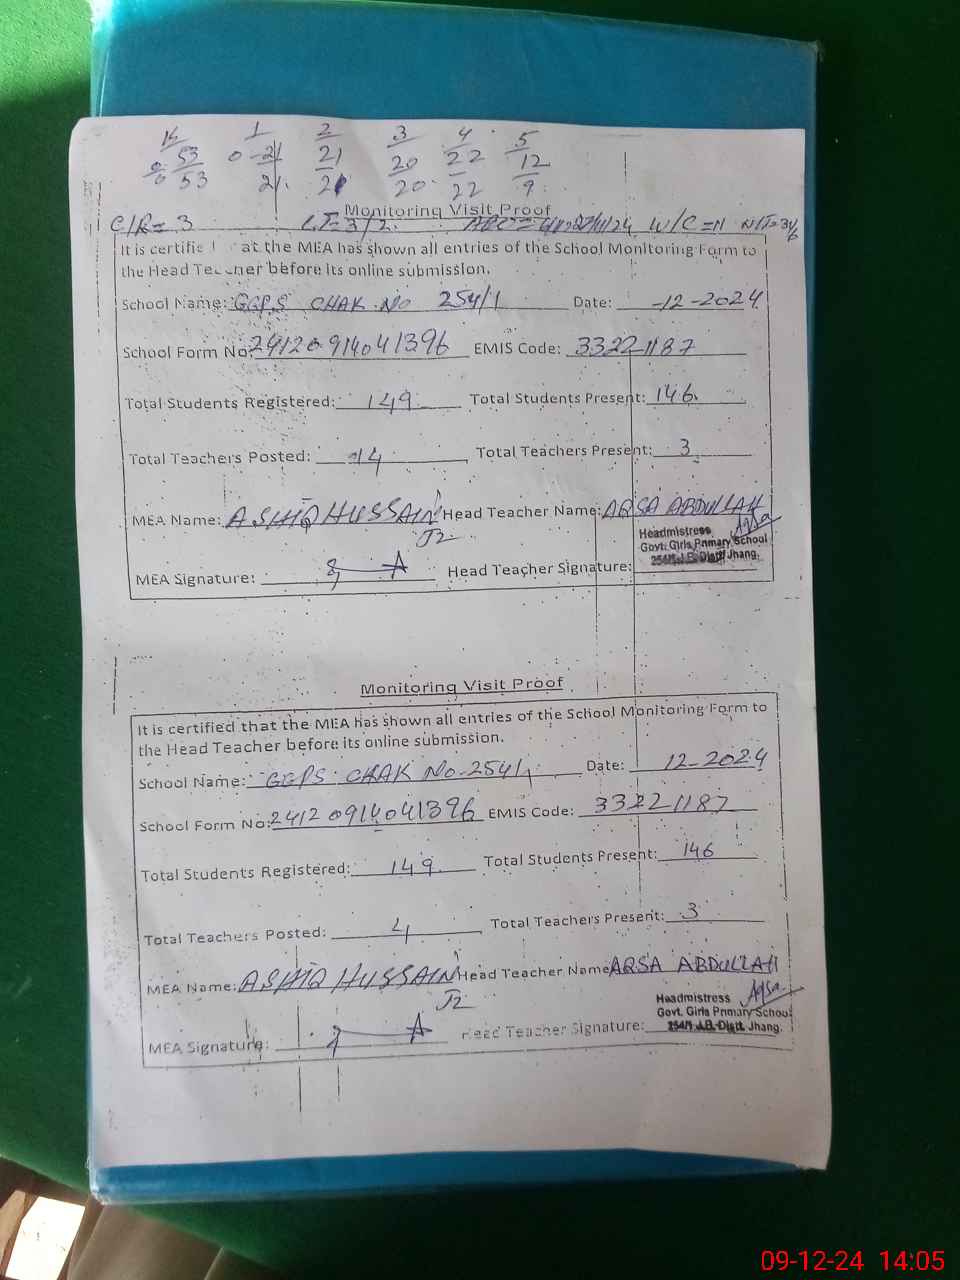 K 1 2 3 4 5
53 0 21 21 20 22 12
53 21 21 20 22 9
Monitoring Visit Proof
C/R= 3 W/C =11
It is certifie at the MEA has shown all entries of the School Monitoring Form to
the Head Teacher before its online submission.
School Name: GGPS CHAK No 254/1 Date: -12-2024
School Form No: 24120914041396 EMIS Code: 33221187
Total Students Registered: 149 Total Students Present: 146
Total Teachers Posted: 4 Total Teachers Present: 3
MEA Name: ASHIQ HUSSAIN Head Teacher Name: AQSA ABDULLAH
J2 Aqsa
Headmistress
Govt. Girls Primary School
254/1 J.B. Distt Jhang.
MEA Signature: Head Teacher Signature:
Monitoring Visit Proof
It is certified that the MEA has shown all entries of the School Monitoring Form to
the Head Teacher before its online submission.
School Name: GGPS CHAK No. 254/1 Date: 12-2024
School Form No: 24120914041396 EMIS Code: 33221187
Total Students Registered: 149 Total Students Present: 146
Total Teachers Posted: 4 Total Teachers Present: 3
MEA Name: ASHIQ HUSSAIN Head Teacher Name AQSA ABDULLAH
J2 Aqsa
Headmistress
Govt. Girls Primary School
254/1 J.B. Distt Jhang.
MEA Signature: Head Teacher Signature:
09-12-24 14:05